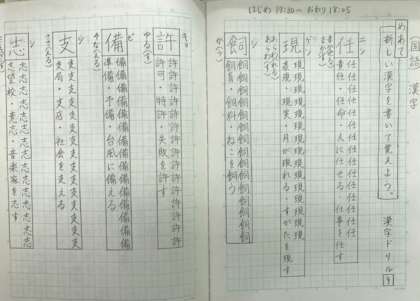 はじめ 17:50〜 おわり 18:05
(国語) 漢字
めあて
新しい漢字を書いて覚えよう。
漢字ドリル 9
ニン
任 任任任任任任任任任
責任・任命・人に任せる・仕事を任す
まか(せる)
まか(す)
ゲン
現 現現現現現現現現現現
表現・現実・月が現れる・すがたを現す
あらわ(れる)
あらわ(す)
シ
飼 飼飼飼飼飼飼飼飼飼
飼育・飼料・ねこを飼う
か(う)
キョ
許 許許許許許許許許許
許可・特許・失敗を許す
ゆる(す)
ビ
備 備備備備備備備備備備
準備・予備・台風に備える
そな(える)
シ
支 支支支支支支支支支支
支局・支店・社会を支える
ささ(える)
シ
志 志志志志志志志志志志志
志望校・意志・音楽家を志す